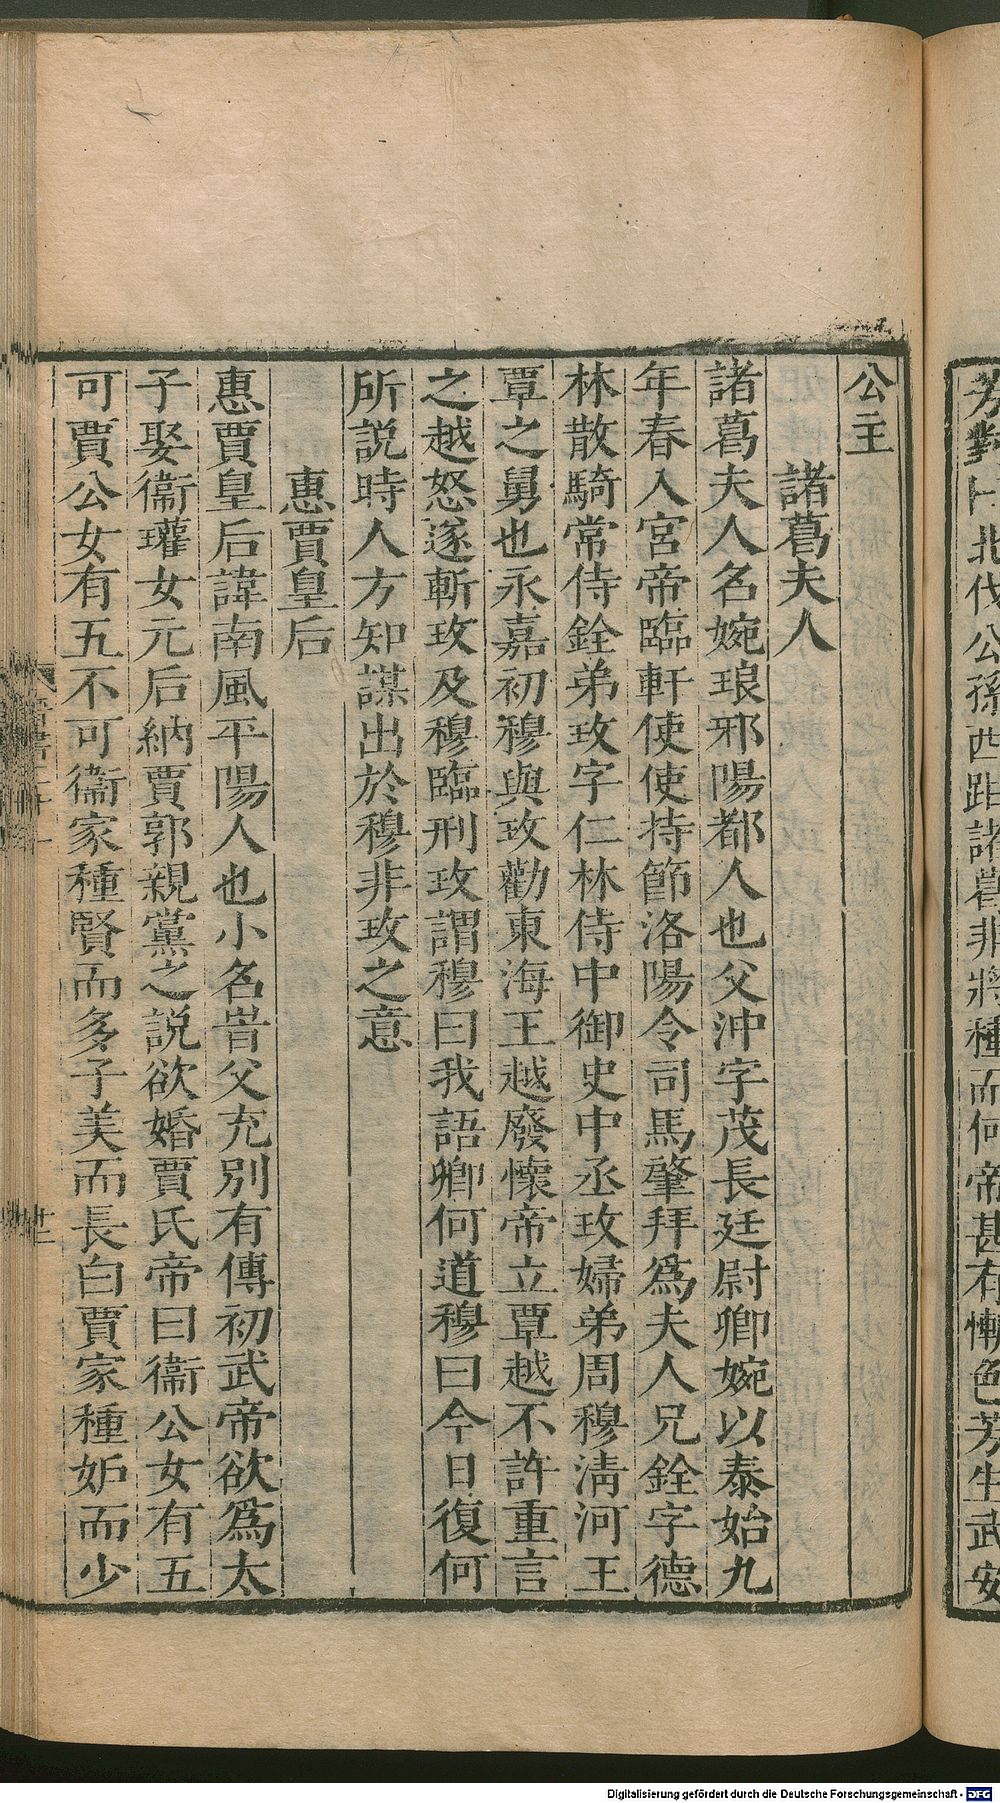 芳對曰北伐公孫西距諸葛非將種而何帝甚有慚色芳生武安
公主
諸葛夫人
諸葛夫人名婉琅邪陽都人也父沖字茂長廷尉卿婉以泰始九
年春入宮帝臨軒使使持節洛陽令司馬肇拜爲夫人兄銓字德
林散騎常侍銓弟玫字仁林侍中御史中丞玫婦弟周穆清河王
覃之舅也永嘉初穆與玫勸東海王越廢懷帝立覃越不許重言
之越怒遂斬玫及穆臨刑玫謂穆曰我語卿何道穆曰今日復何
所說時人方知謀出於穆非玫之意
惠賈皇后
惠賈皇后諱南風平陽人也小名旹父充別有傳初武帝欲爲太
子娶衞瓘女元后納賈郭親黨之說欲婚賈氏帝曰衞公女有五
可賈公女有五不可衞家種賢而多子美而長白賈家種妒而少
Digitalisierung gefördert durch die Deutsche Forschungsgemeinschaft - DFG